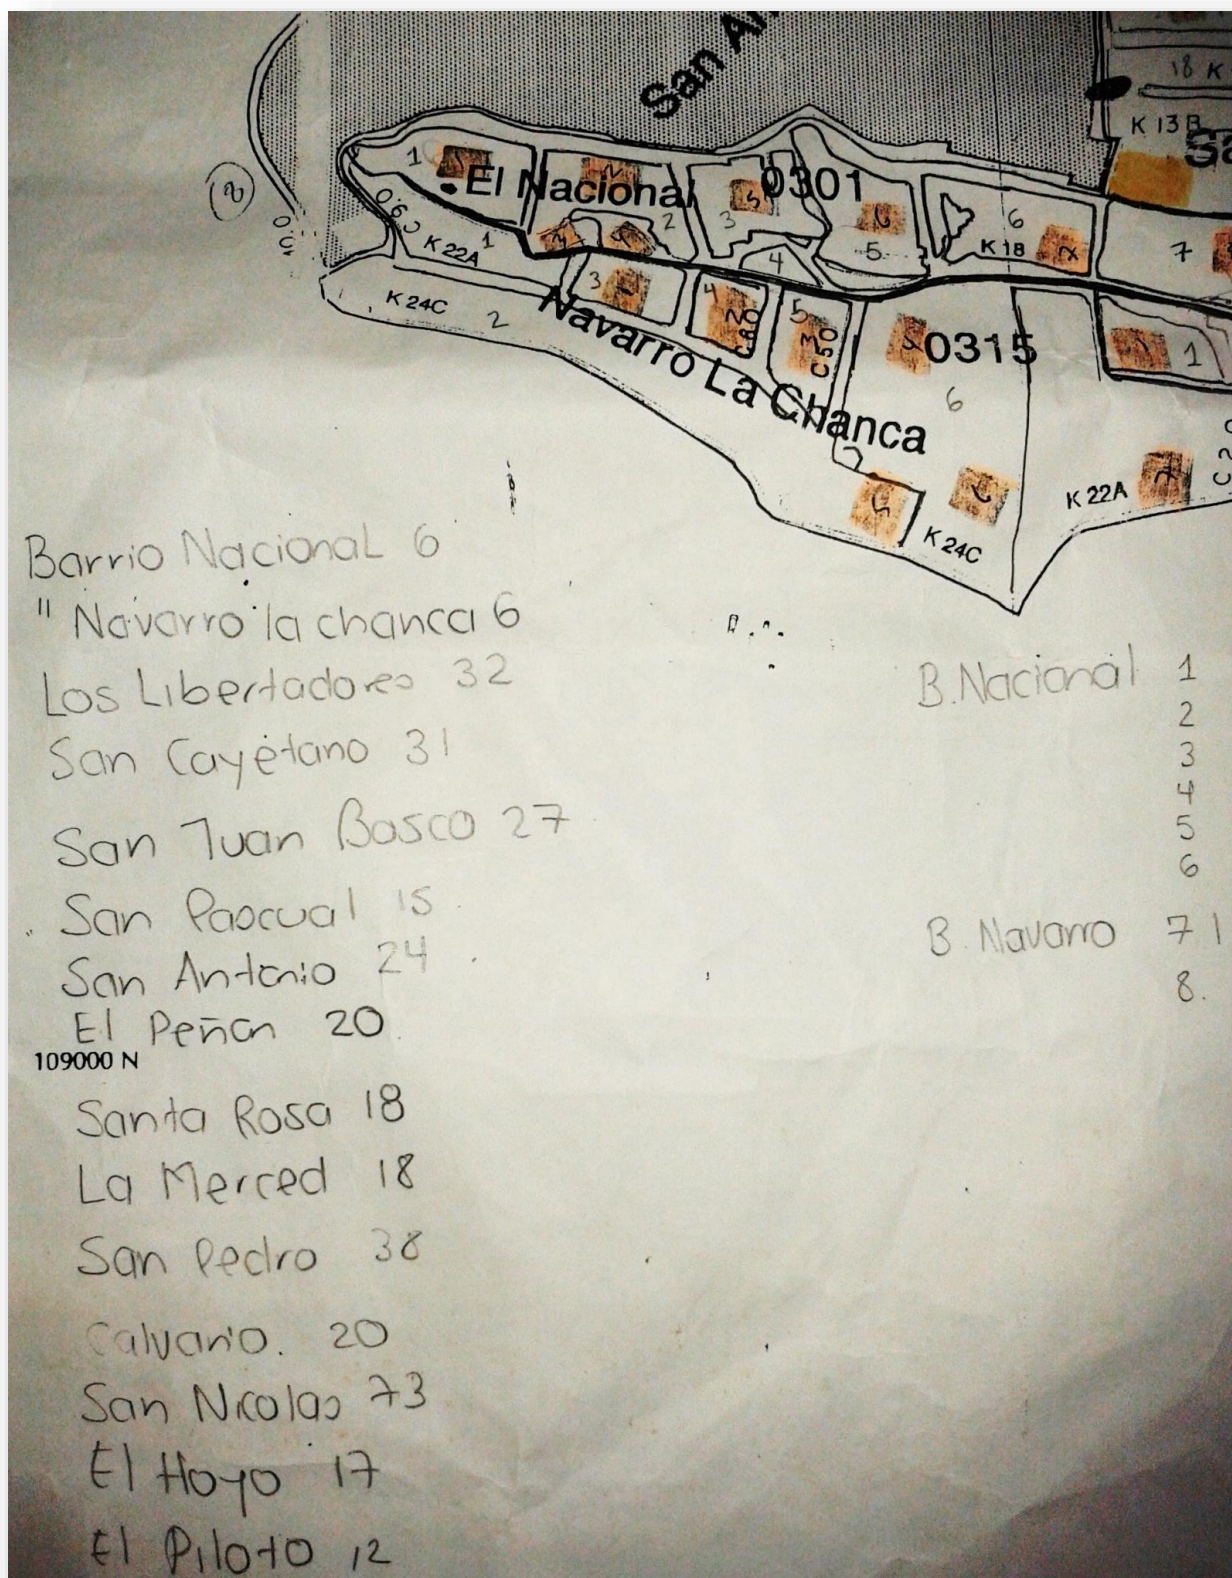 San An
18 K
K 13B
Sa
8
1
El Nacional
0301
2
3
5
4
6
K 18
7
C 9 0
K 22A
1
K 24C
2
3
4
C 80
5
C 50
Navarro La Chanca
0315
1
6
K 22A
K 24C
Barrio Nacional 6
" Navarro la chanca 6
Los Libertadores 32
San Cayetano 31
San Juan Bosco 27
San Pascual 15
San Antonio 24
El Peñon 20
109000 N
Santa Rosa 18
La Merced 18
San Pedro 38
Calvario. 20
San Nicolas 73
El Hoyo 17
El Piloto 12
B. Nacional 1
2
3
4
5
6
B. Navarro 7 1
8.